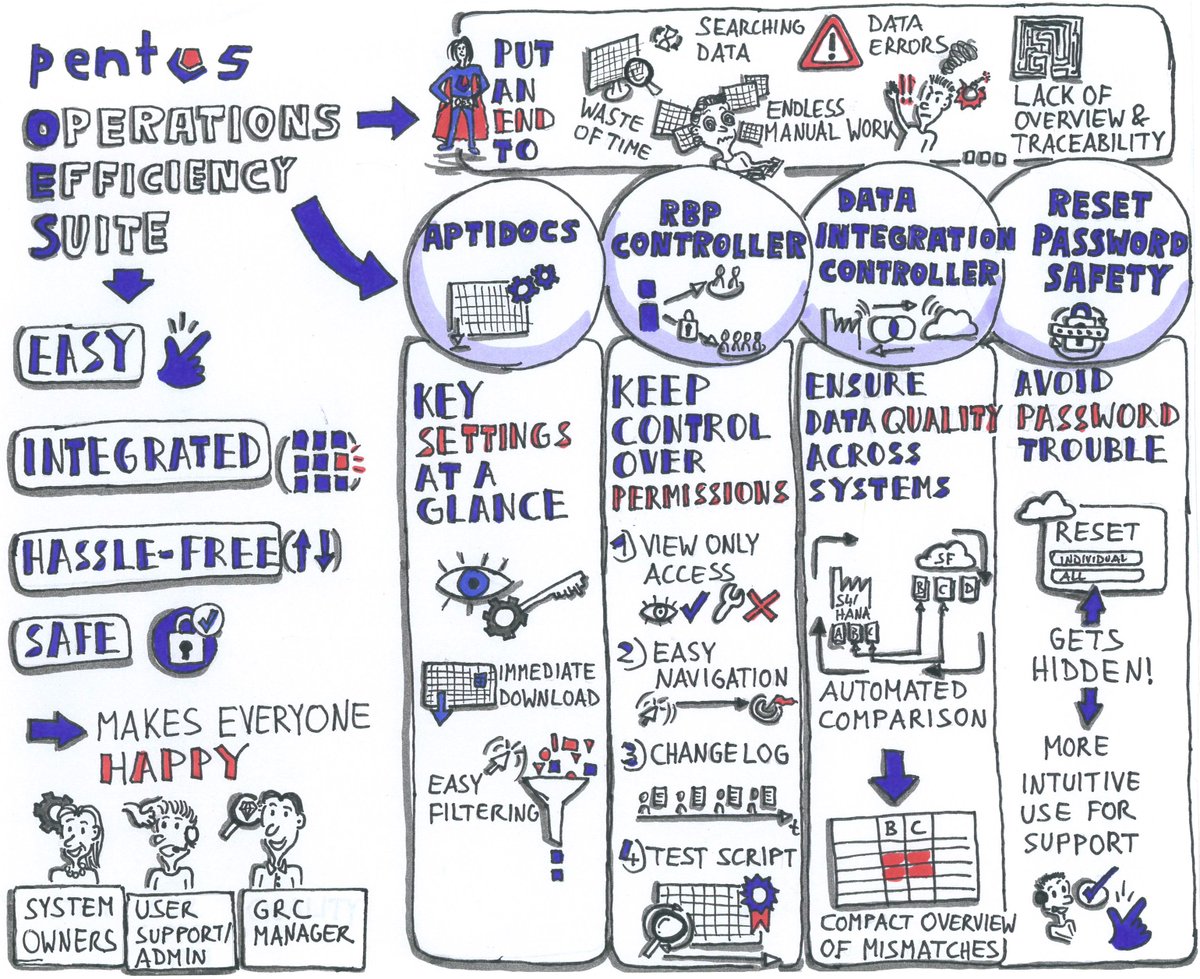 pentos
OPERATIONS
EFFICIENCY
SUITE
EASY
INTEGRATED
HASSLE-FREE
SAFE
MAKES EVERYONE
HAPPY
SYSTEM
OWNERS
USER
SUPPORT/
ADMIN
GRC
MANAGER
PUT
AN
END
TO
WASTE
OF TIME
SEARCHING
DATA
ENDLESS
MANUAL WORK
DATA
ERRORS
LACK OF
OVERVIEW &
TRACEABILITY
APTIDOCS
KEY
SETTINGS
AT A
GLANCE
IMMEDIATE
DOWNLOAD
EASY
FILTERING
RBP
CONTROLLER
KEEP
CONTROL
OVER
PERMISSIONS
1) VIEW ONLY
ACCESS
2) EASY
NAVIGATION
3) CHANGE LOG
t
4) TEST SCRIPT
DATA
INTEGRATION
CONTROLLER
ENSURE
DATA QUALITY
ACROSS
SYSTEMS
SF
B C D
S4/
HANA
A B C
AUTOMATED
COMPARISON
B C
COMPACT OVERVIEW
OF MISMATCHES
RESET
PASSWORD
SAFETY
AVOID
PASSWORD
TROUBLE
RESET
INDIVIDUAL
ALL
GETS
HIDDEN!
MORE
INTUITIVE
USE FOR
SUPPORT